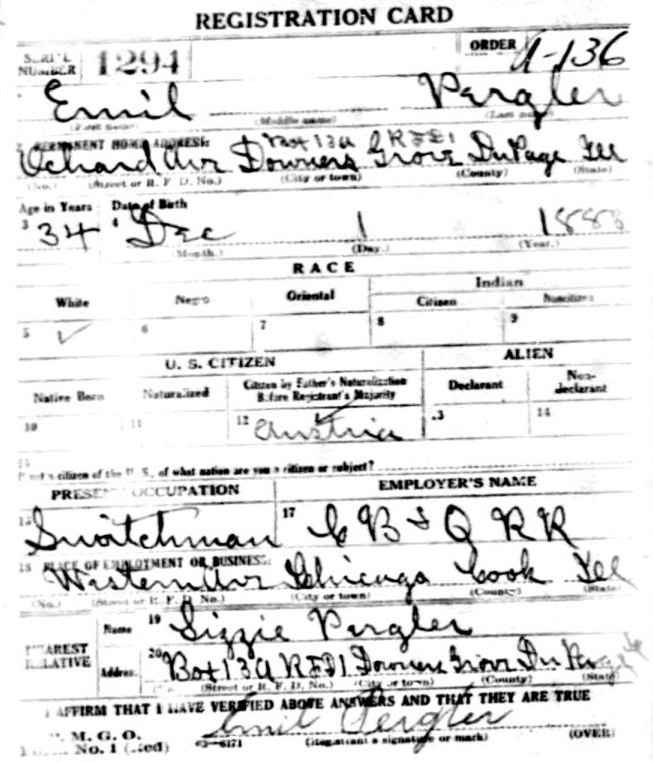 REGISTRATION CARD
SERIAL NUMBER 1294 ORDER A-136
Emil Pergler
(First name) (Middle name) (Last name)
2 PERMANENT HOME ADDRESS: Box 13A RFD1
Ochard Ave Downers Grove DuPage Ill
(No.) (Street or R. F. D. No.) (City or town) (County) (State)
Age in Years Date of Birth
3 34 4 Dec 1 1883
(Month.) (Day.) (Year.)
RACE
White Negro Oriental Indian
Citizen Noncitizen
5 ✓ 6 7 8 9
U. S. CITIZEN ALIEN
Native Born Naturalized Citizen by Father's Naturalization Before Registrant's Majority Declarant Non-declarant
10 11 12 ✓ Austria 13 14
15
If not a citizen of the U. S., of what nation are you a citizen or subject?
PRESENT OCCUPATION EMPLOYER'S NAME
16 Switchman 17 C B & Q RR
18 PLACE OF EMPLOYMENT OR BUSINESS:
Western Ave Chicago Cook Ill
(No.) (Street or R. F. D. No.) (City or town) (County) (State)
NEAREST RELATIVE Name 19 Lizzie Pergler
Address 20 Box 13A RFD1 Downers Grove Du Page
(Street or R. F. D. No.) (City or town) (County) (State)
I AFFIRM THAT I HAVE VERIFIED ABOVE ANSWERS AND THAT THEY ARE TRUE
P. M. G. O.
Form No. 1 (Red) 03-6171 Emil Pergler
(Registrant's signature or mark) (OVER)